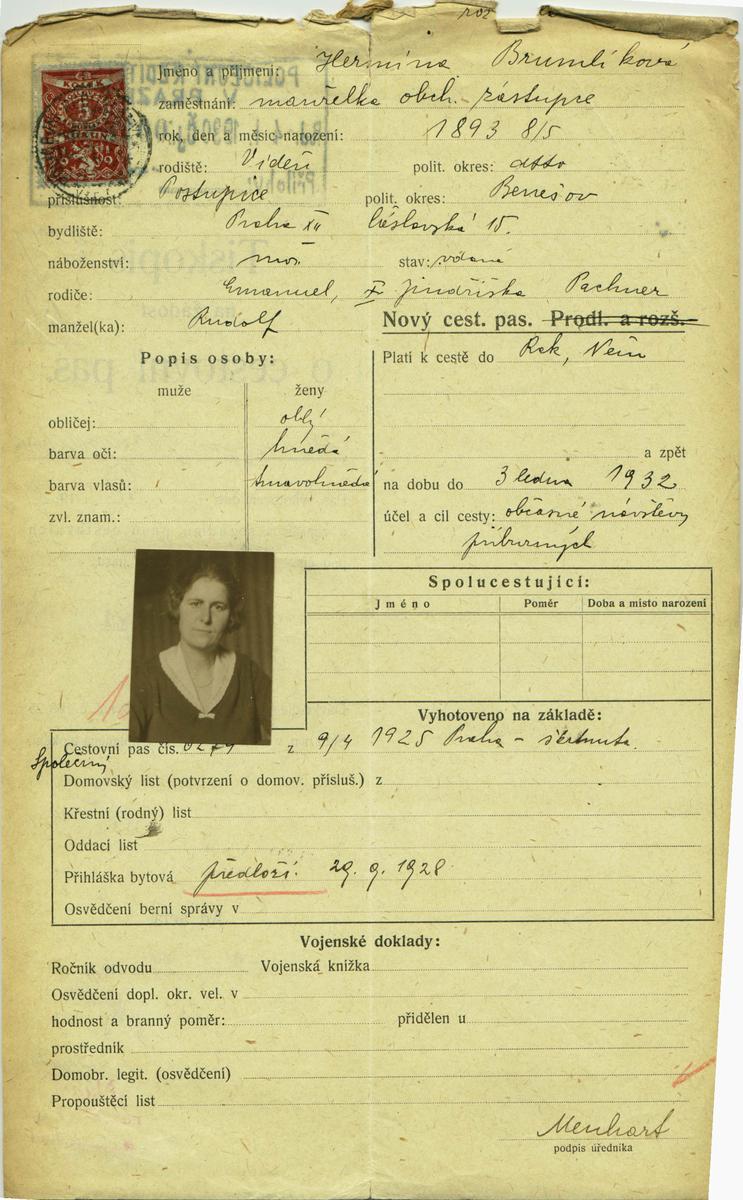 Jméno a příjmení: Hermina Brumlíková
zaměstnání: manželka obch. zástupce
rok, den a měsíc narození: 1893 8/5
rodiště: Vídeň polit. okres: dtto
příslušnost: Postupice polit. okres: Benešov
bydliště: Praha XII Čáslavská 15.
náboženství: stav: vdaná
rodiče: Emanuel, Jindřiška Pachner
manžel(ka): Rudolf
Nový cest. pas. Prodl. a rozš.
Popis osoby:
muže ženy
obličej: oblý
barva očí: hnědá
barva vlasů: tmavohnědá
zvl. znam.:
Platí k cestě do Rak, Něm
a zpět
na dobu do 3 ledna 1932
účel a cíl cesty: občasné návštěvy
příbuzných
Spolucestující:
Jméno Poměr Doba a místo narození
Vyhotoveno na základě:
Společný
Cestovní pas čís. z 9/4 1925 Praha - škrtnuta.
Domovský list (potvrzení o domov. přísluš.) z
Křestní (rodný) list
Oddací list
Přihláška bytová předloží. 29. 9. 1928
Osvědčení berní správy v
Vojenské doklady:
Ročník odvodu Vojenská knížka
Osvědčení dopl. okr. vel. v
hodnost a branný poměr: přidělen u
prostředník
Domobr. legit. (osvědčení)
Propouštěcí list
Menhart
podpis úředníka